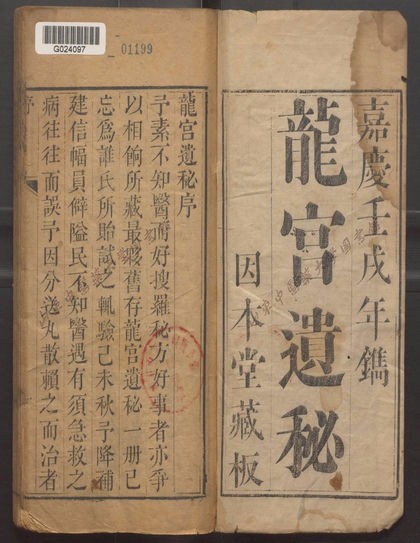 嘉慶壬戌年鐫
龍宮遺秘
因本堂藏板
龍宮遺秘序
予素不知醫而好搜羅秘方好事者亦爭
以相餉所藏最夥舊存龍宮遺秘一册已
忘爲誰氏所貽試之輒驗己未秋予降補
建信幅員僻隘民不知醫遇有須急救之
病往往而誤予因分送丸散賴之而治者
序
G024097
01199